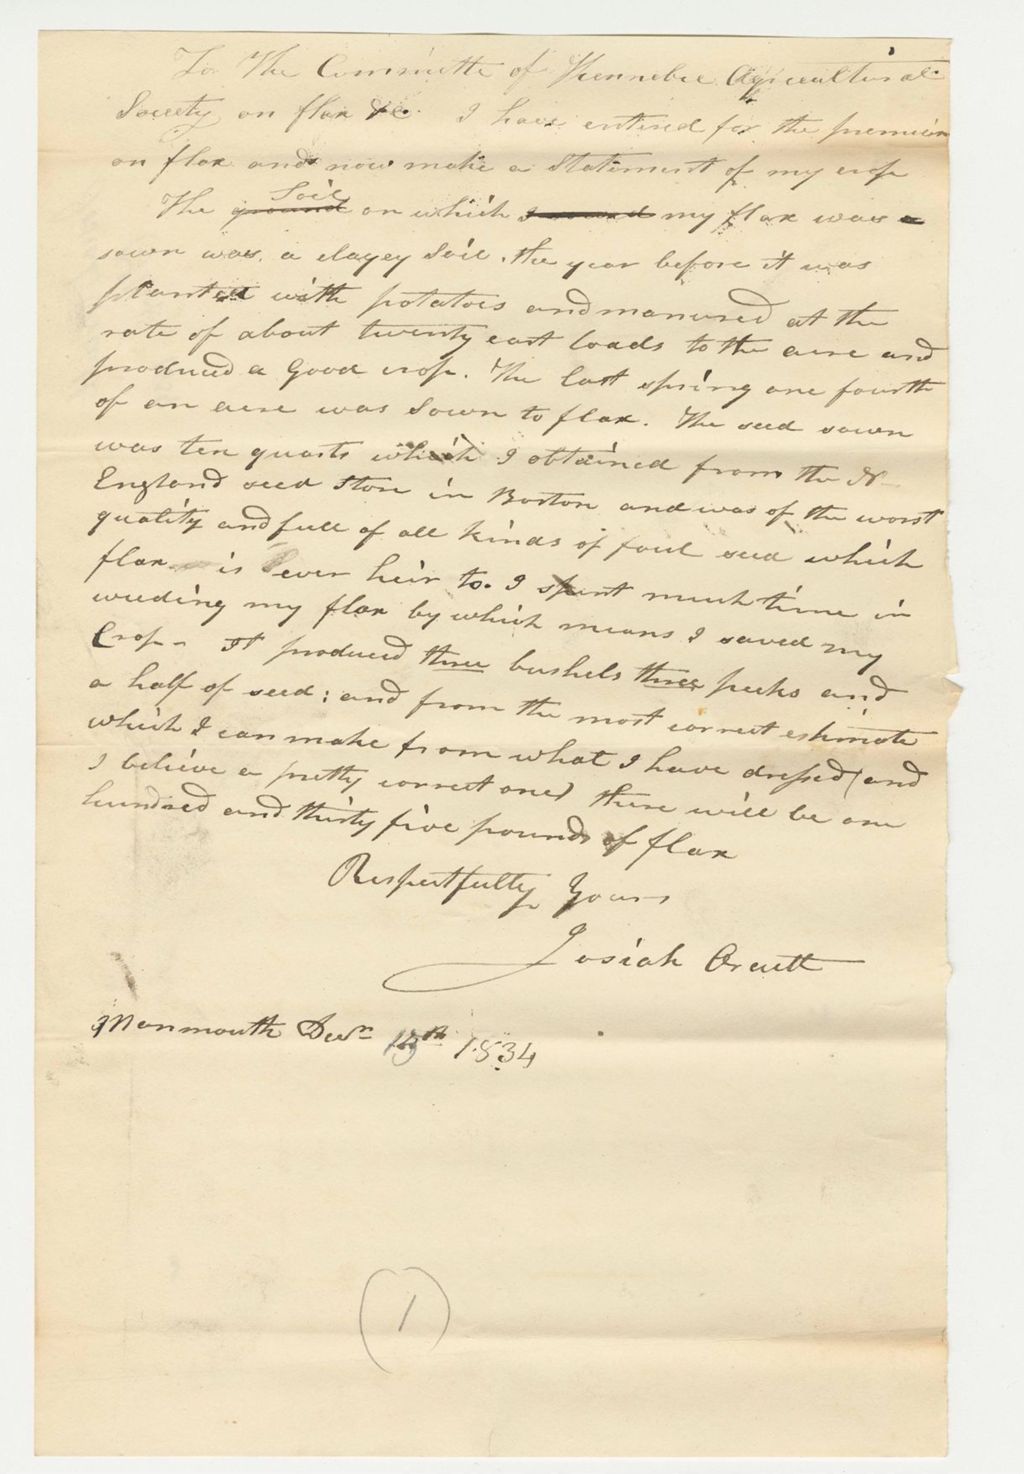 To The Committe of Kennebec Agricultural
Society on flax &c. I have entered for the premium
on flax and now make a Statement of my crop
Soil
The ground on which my flax was
sown was a clayey Soil. the year before it was
planted with potatoes and manured at the
rate of about twenty cart loads to the acre and
produced a Good crop. The last spring one fourth
of an acre was Sown to flax. The seed sown
was ten quarts which I obtained from the N
England seed Store in Boston and was of the worst
quality and full of all kinds of foul seed which
flax is ever heir to. I spent much time in
weeding my flax by which means I saved my
Crop - It produced three bushels three pecks and
a half of seed; and from the most correct estimate
which I can make from what I have dressed (and
I believe a pretty correct one) there will be one
hundred and thirty five pounds of flax
Respectfully Yours
Josiah Orcutt
Monmouth Decr 15th 1834
1